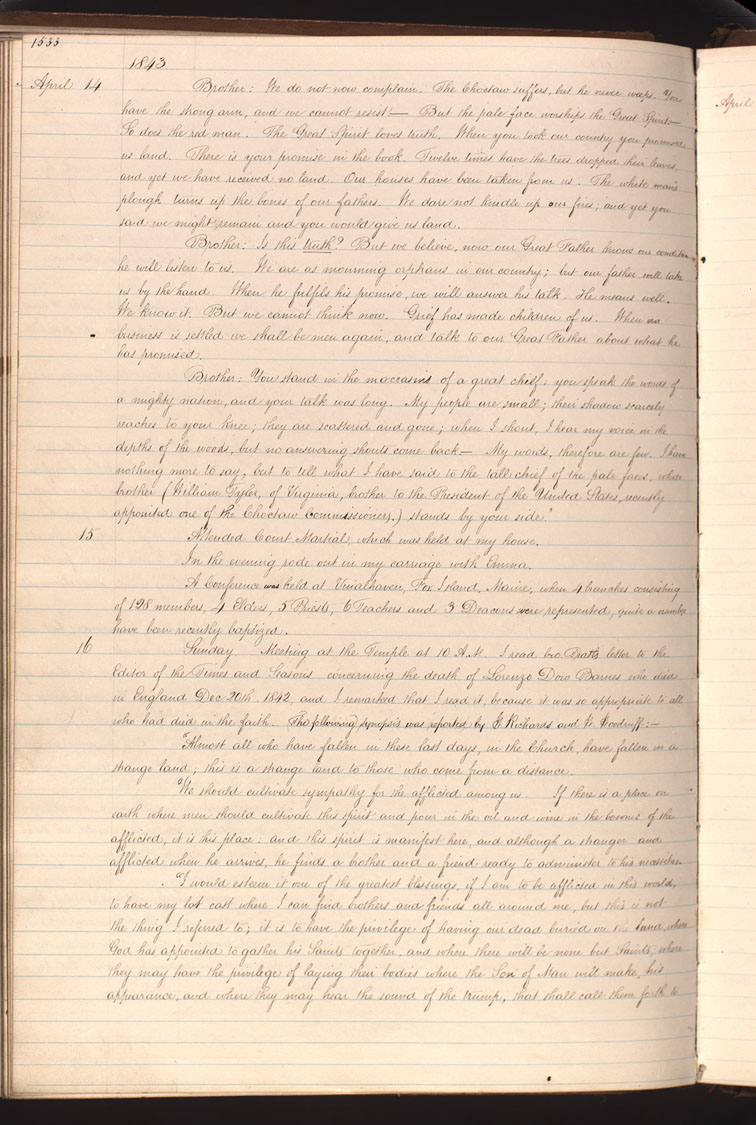 1533
1843
April 14 Brother: We do not now complain. The Choctaw suffers, but he never weeps. You
have the strong arm, and we cannot resist.— But the pale face worships the Great Spirit.—
So does the red man. The Great Spirit loves truth. When you took our country you promised
us land. There is your promise in the book. Twelve times have the trees dropped their leaves,
and yet we have received no land. Our houses have been taken from us. The white man's
plough turns up the bones of our fathers. We dare not kindle up our fires; and yet you
said we might remain and you would give us land.
Brother: Is this truth? But we believe, now our Great Father knows our condition
he will listen to us. We are as mourning orphans in our country; but our father will take
us by the hand. When he fulfils his promise, we will answer his talk. He means well.
We know it. But we cannot think now. Grief has made children of us. When our
business is settled we shall be men again, and talk to our Great Father about what he
has promised.
Brother: You stand in the moccasins of a great chief, you speak the words of
a mighty nation, and your talk was long. My people are small; their shadow scarcely
reaches to your knee; they are scattered and gone; when I shout, I hear my voice in the
depths of the woods, but no answering shouts come back— My words, therefore are few. I have
nothing more to say, but to tell what I have said to the tall chief of the pale faces, whose
brother (William Tyler, of Virginia, brother to the President of the United States, recently
appointed one of the Choctaw Commissioners,) stands by your side."
15 Attended Court Martial, which was held at my house.
In the evening rode out in my carriage with Emma.
A Conference was held at Vinalhaven, Fox Island, Maine, when 4 branches consisting
of 128 members, 4 Elders, 5 Priests, 6 Teachers and 3 Deacons were represented, quite a number
have been recently baptized.
16 Sunday Meeting at the Temple at 10 A.M. I read bro. Pratt's letter to the
Editor of the Times and Seasons concerning the death of Lorenzo Dow Barnes who died
in England Dec. 20th 1842, and I remarked that I read it, because it was so appropriate to all
who had died in the faith. The following synopsis was reported by W. Richards and W. Woodruff:—
"Almost all who have fallen in these last days, in the Church, have fallen in a
strange land; this is a strange land to those who come from a distance.
"We should cultivate sympathy for the afflicted among us. If there is a place on
earth where men should cultivate this spirit and pour in the oil and wine in the bosoms of the
afflicted, it is his place: and this spirit is manifest here, and although a stranger and
afflicted when he arrives, he finds a brother and a friend ready to administer to his necessities.
"I would esteem it one of the greatest blessings, if I am to be afflicted in this world,
to have my lot cast where I can find brothers and friends all around me, but this is not
the thing I referred to; it is to have the privilege of having our dead buried on the land, where
God has appointed to gather his Saints together, and where there will be none but Saints; where
they may have the privilege of laying their bodies where the Son of Man will make, his
appearance, and where they may hear the sound of the trump, that shall call them forth to
April